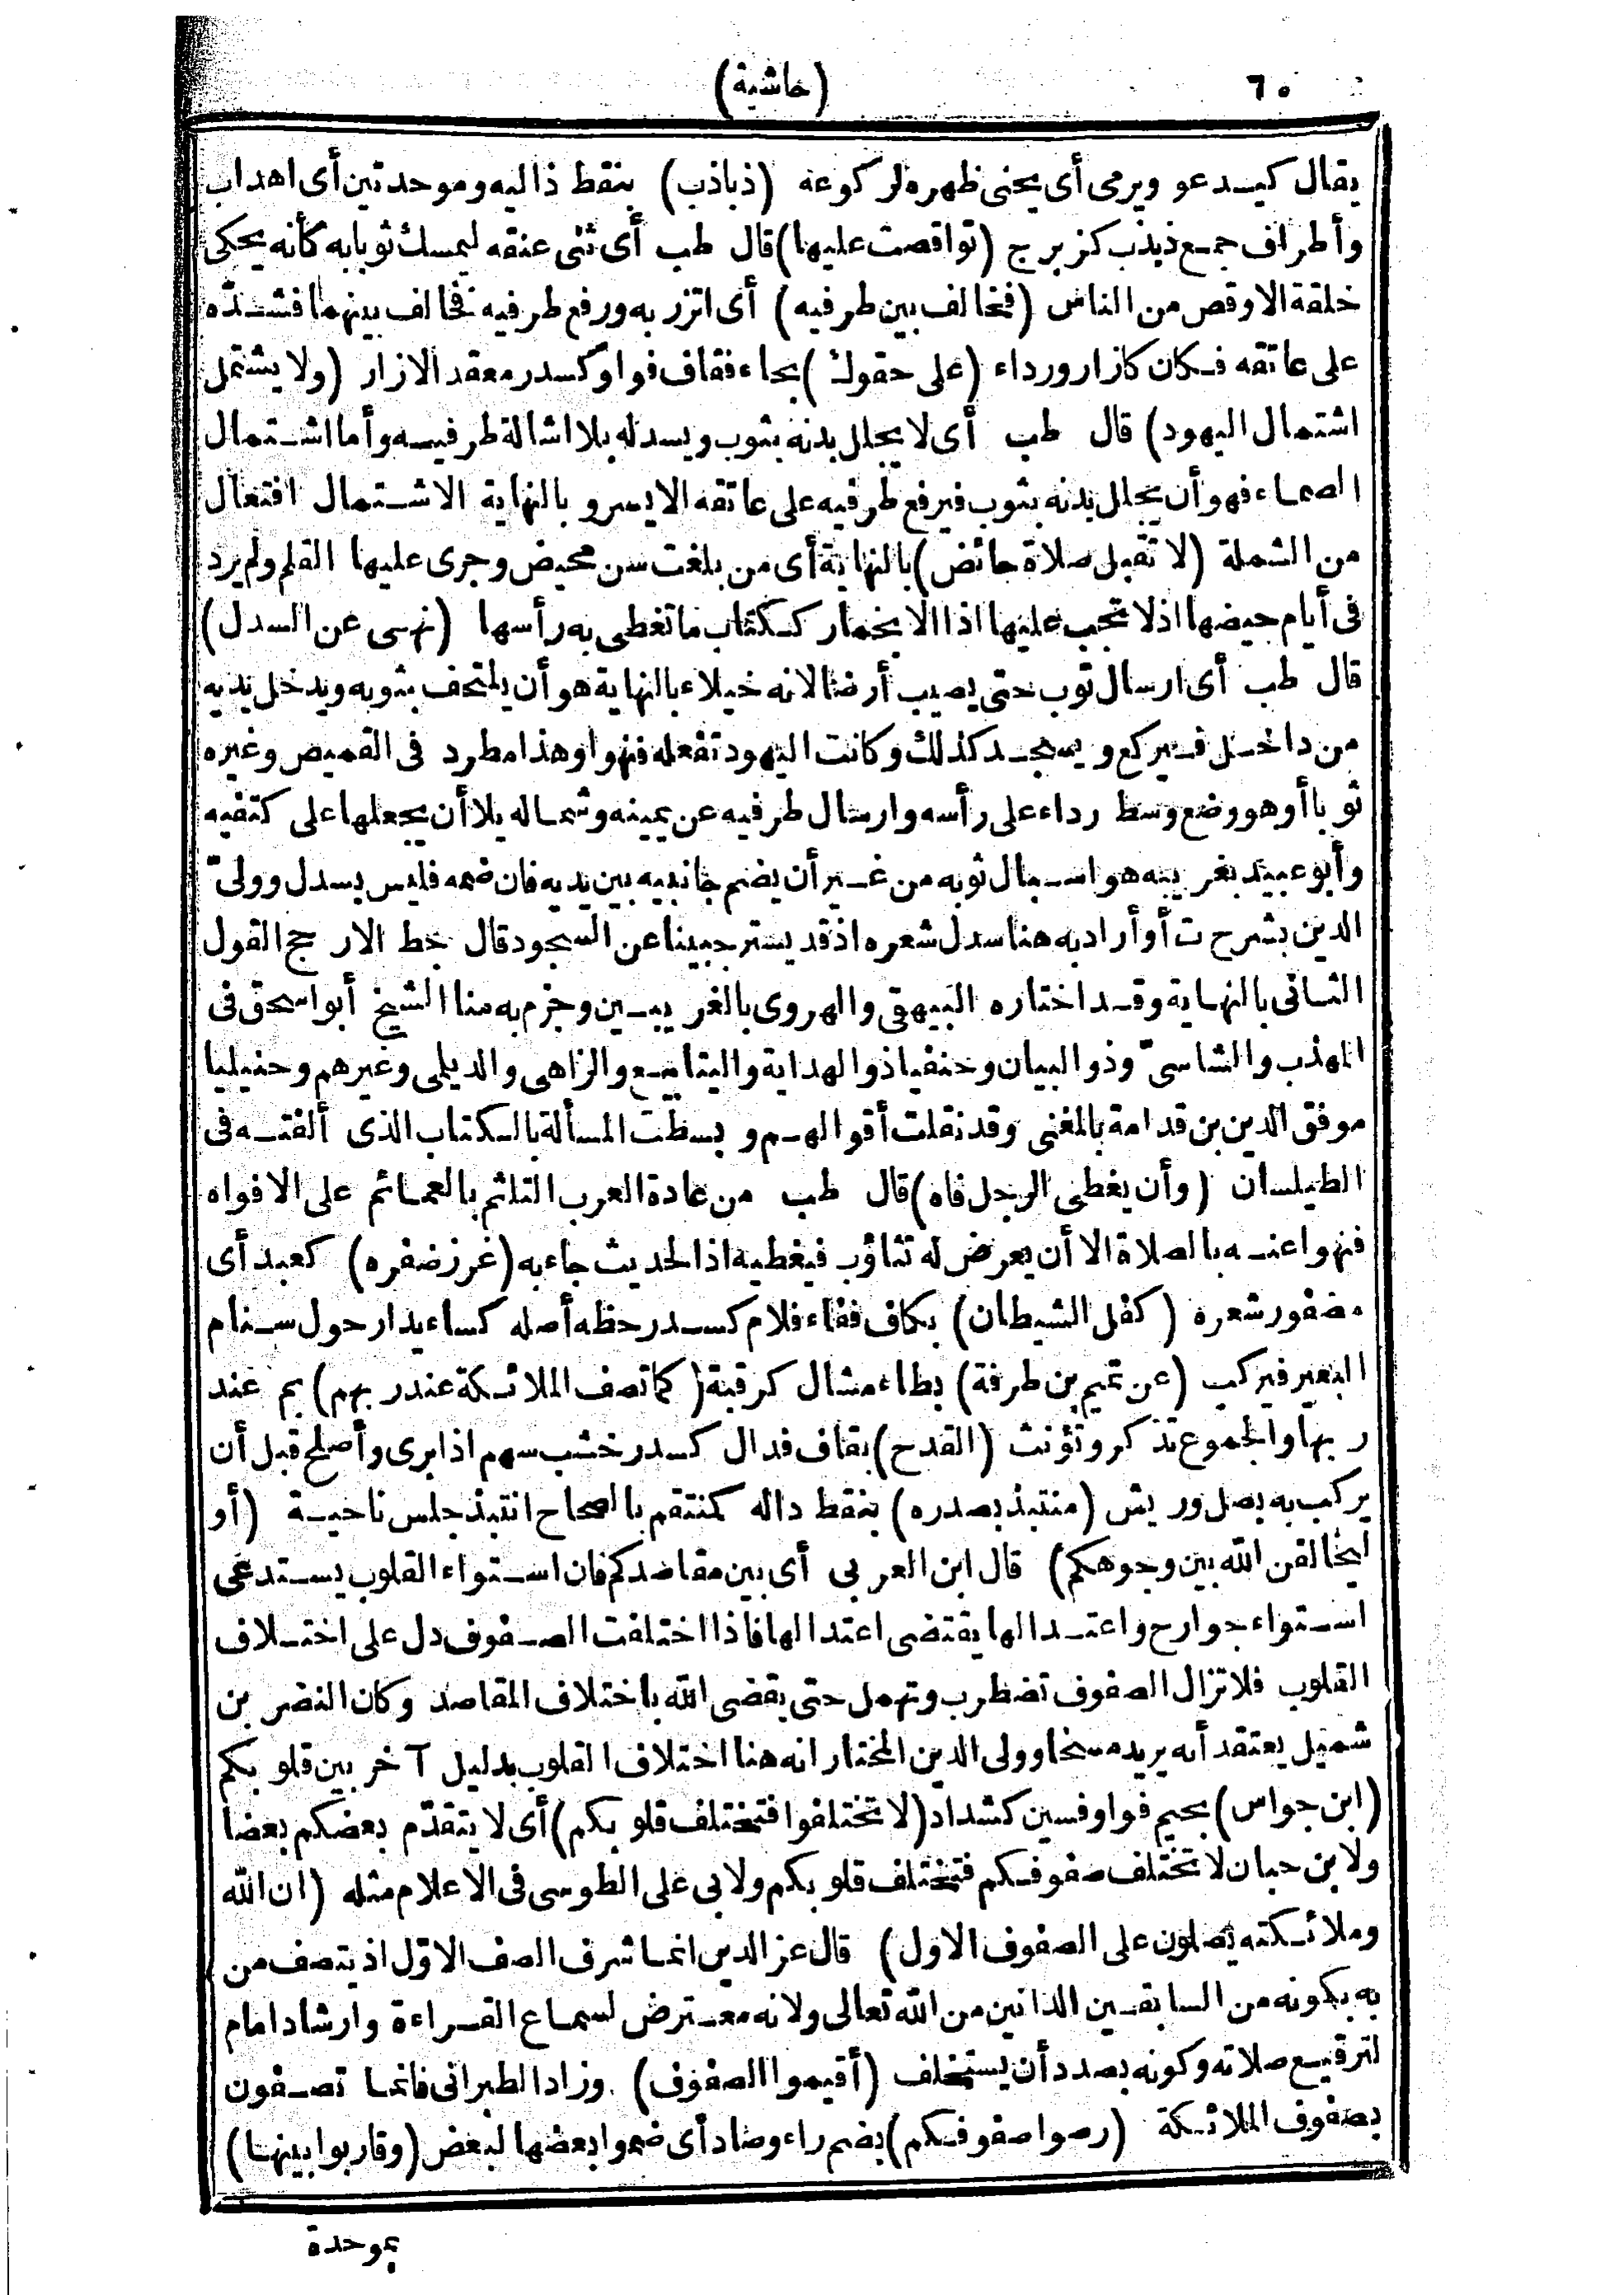 ٦٠
(حاشية)
يقال كيدعو ويرمى أى يحنى ظهره لركوعه (ذباذب) بنقط ذاليه وموحدتين أى اهداب
وأطراف جمع ذبذب كزبرج (تواقصت عليها) قال طب أى ثنى عنقه ليمسك ثوبا به كأنه يحكى
خلقة الاوقص من الناس (فخالف بين طرفيه) أى اتزر به ورفع طرفيه فخالف بينهما فشدّه
على عاتقه فكان كازار ورداء (على حقوك) بحاء فقاف فواو كسدر معقد الازار (ولا يشتمل
اشتمال اليهود) قال طب أى لا يجلل بدنه بثوب ويسدله بلا اشالة طرفيه وأما اشتمال
الصماء فهو أن يجلل بدنه بثوب فيرفع طرفيه على عاتقه الايسر و بالنهاية الاشتمال افتعال
من الشملة (لا تقبل صلاة حائض) بالنهاية أى من بلغت سن محيض وجرى عليها القلم ولم يرد
فى أيام حيضها اذ لا تجب عليها اذا الا بخمار ككتاب ما تغطى به رأسها (نهى عن السدل)
قال طب أى ارسال ثوب حتى يصيب أرضا لانه خيلاء بالنهاية هو أن يلتحف بثوبه ويدخل يديه
من داخل فيركع ويسجد كذلك وكانت اليهود تفعله فنهوا وهذا مطرد فى القميص وغيره
ثوبا أو هو وضع وسط رداء على رأسه وارسال طرفيه عن يمينه وشماله بلا أن يجعلها على كتفيه
وأبو عبيد بغريبه هو اسبال ثوبه من غير أن يضم جانبيه بين يديه فان ضمه فليس بسدل وولىّ
الدين بشرح ت أو أراد به هنا سدل شعره اذ قد يستر جبينا عن السجود قال خط الارجح القول
الثانى بالنهاية وقد اختاره البيهقى والهروى بالغريبين وجزم به منا الشيخ أبو اسحق فى
المهذب والشاسىّ وذو البيان وحنفيا ذو الهداية والينابيع والزاهى والديلى وغيرهم وحنبليا
موفق الدين بن قدامة بالمغنى وقد نقلت أقوالهم و بسطت المسألة بالكتاب الذى ألفته فى
الطيلسان (وأن يغطى الرجل فاه) قال طب من عادة العرب التلثم بالعمائم على الافواه
فنهوا عنه بالصلاة الا أن يعرض له تثاؤب فيغطيه اذ الحديث جاء به (غرز ضفره) كعبد أى
مضفور شعره (كفل الشيطان) بكاف ففاء فلام كسدر حظه أصله كساء يدار حول سنام
البعير فيركب (عن تميم بن طرفة) بطاء مشال كرقبة (كما تصف الملائكة عند ربهم) بم عند
ربها والجموع تذكر وتؤنث (القدح) بقاف فدال كسدر خشب سهم اذا برى وأصلح قبل أن
يركب به بصل وريش (منتبذ بصدره) بنقط داله كمنتقم بالصحاح انتبذ جلس ناحية (أو
ليخالفن الله بين وجوهكم) قال ابن العربى أى بين مقاصدكم فان استواء القلوب يستدعى
استواء جوارح واعتدالها يقتضى اعتدالها فاذا اختلفت الصفوف دل على اختلاف
القلوب فلا تزال الصفوف تضطرب وتهمل حتى يقضى الله باختلاف المقاصد وكان النضر بن
شميل يعتقد أنه يريد مسخا وولى الدين المختار انه هنا اختلاف القلوب بدليل آخر بين قلوبكم
(ابن جواس) بجيم فواو فسين كشداد (لا تختلفوا فتختلف قلوبكم) أى لا يتقدّم بعضكم بعضا
ولابن حبان لا تختلف صفوفكم فتختلف قلوبكم ولابى على الطوسى فى الاعلام مثله (ان الله
وملائكته يصلون على الصفوف الاول) قال عز الدين انما شرف الصف الاوّل اذ يتصف من
به بكونه من السابقين الدانين من الله تعالى ولانه معترض لسماع القراءة وارشاد امام
لترقيع صلاته وكونه بصدد أن يستخلف (أقيموا الصفوف) وزاد الطبرانى فانما تصفون
بصفوف الملائكة (رصوا صفوفكم) بضم راء وصاد أى ضموا بعضها لبعض (وقاربوا بينها)
بموحدة